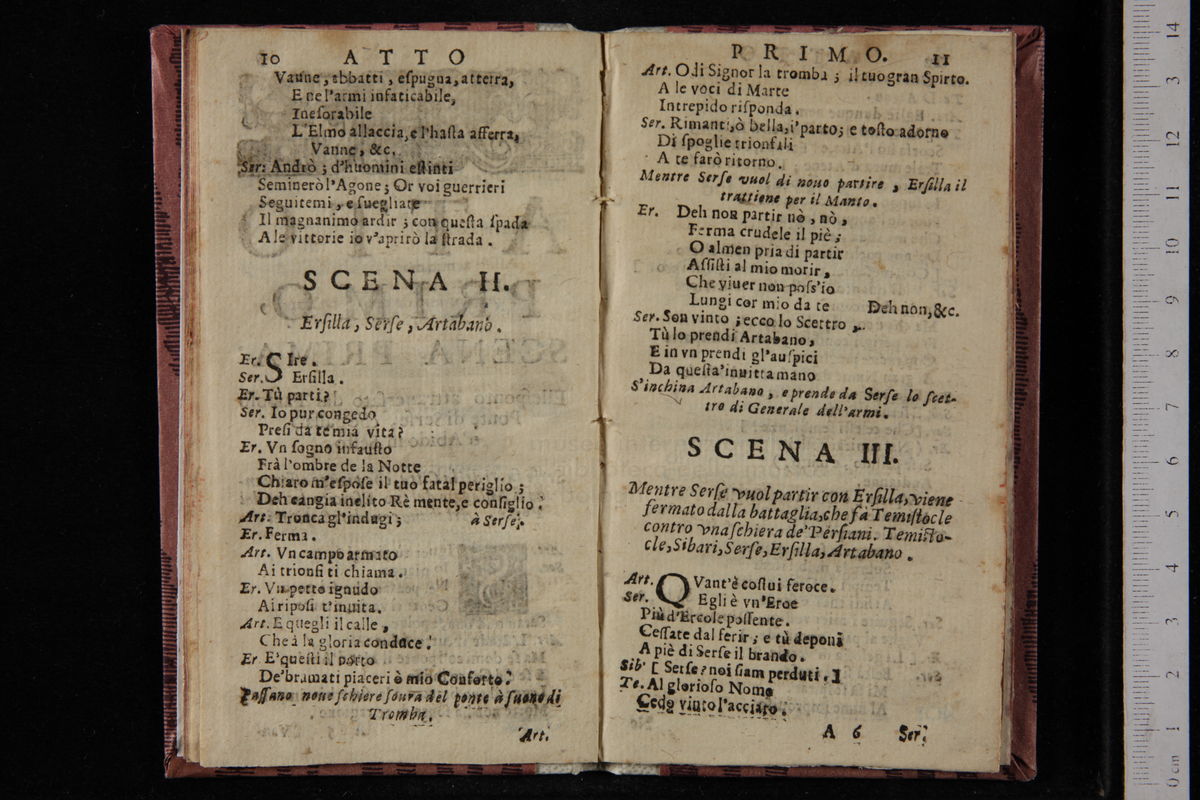 10 ATTO
Vanne, abbatti, eſpugna, atterra,
E ne l'armi infaticabile,
Ineſorabile
L'Elmo allaccia, e l'haſta afferra,
Vanne, &c.
Ser. Andrò; d'huomini eſtinti
Seminerò l'Agone; Or voi guerrieri
Seguitemi, e ſuegliate
Il magnanimo ardir; con queſta ſpada
A le vittorie io v'aprirò la ſtrada.
SCENA II.
Erſilla, Serſe, Artabano.
Er. SIre.
Ser. Erſilla.
Er. Tù parti?
Ser. Io pur congedo
Preſi da te mia vita?
Er. Vn ſogno infauſto
Frà l'ombre de la Notte
Chiaro m'eſpoſe il tuo fatal periglio;
Deh cangia inclito Rè mente, e conſiglio.
Art. Tronca gl'indugi; à Serſe.
Er. Ferma.
Art. Vn campo armato
Ai trionfi ti chiama.
Er. Vn petto ignudo
Ai ripoſi t'inuita.
Art. E quegli il calle,
Che à la gloria conduce.
Er. E'queſti il porto
De'bramati piaceri ò mio Conforto.
Paſſano noue ſchiere ſoura del ponte à ſuono di
Tromba.
Art.
PRIMO. 11
Art. Odi Signor la tromba; il tuo gran Spirto.
A le voci di Marte
Intrepido riſponda.
Ser. Rimanti, ò bella, i'parto; e toſto adorno
Di ſpoglie trionfali
A te farò ritorno.
Mentre Serſe vuol di nouo partire, Erſilla il
trattiene per il Manto.
Er. Deh non partir nò, nò,
Ferma crudele il piè;
O almen pria di partir
Aſſiſti al mio morir,
Che viuer non poſs'io
Lungi cor mio da te Deh non, &c.
Ser. Son vinto; ecco lo Scettro,
Tù lo prendi Artabano,
E in vn prendi gl'auſpici
Da queſta'inuitta mano
S'inchina Artabano, e prende da Serſe lo ſcet-
tro di Generale dell'armi.
SCENA III.
Mentre Serſe vuol partir con Erſilla, viene
fermato dalla battaglia, che fà Temiſtocle
contro vna ſchiera de'Perſiani. Temiſto-
cle, Sibari, Serſe, Erſilla, Artabano.
Art. QVant'è coſtui feroce.
Ser. Egli è vn'Eroe
Più d'Ercole poſſente.
Ceſſate dal ferir; e tù deponi
A piè di Serſe il brando.
Sib. [ Serſe? noi ſiam perduti. ]
Te. Al glorioſo Nome
Cede vinto l'acciaro.
A 6 Ser.